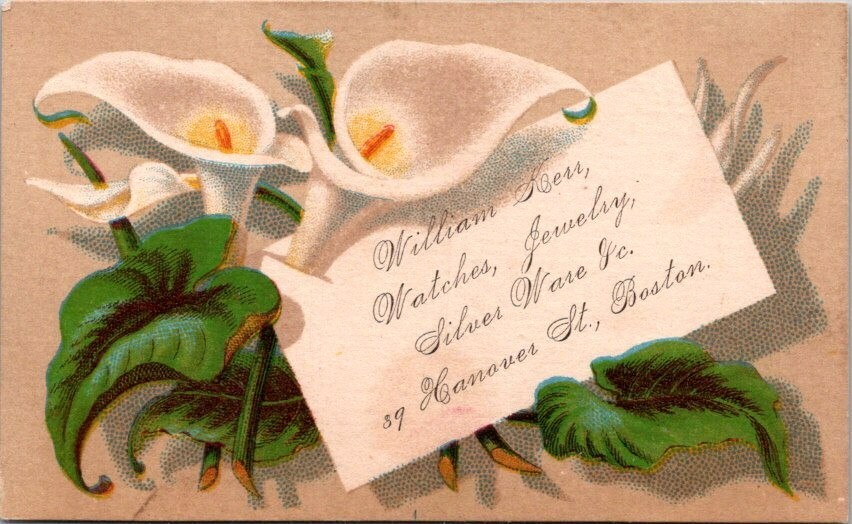 William Kerr,
Watches, Jewelry,
Silver Ware &c.
39 Hanover St., Boston.